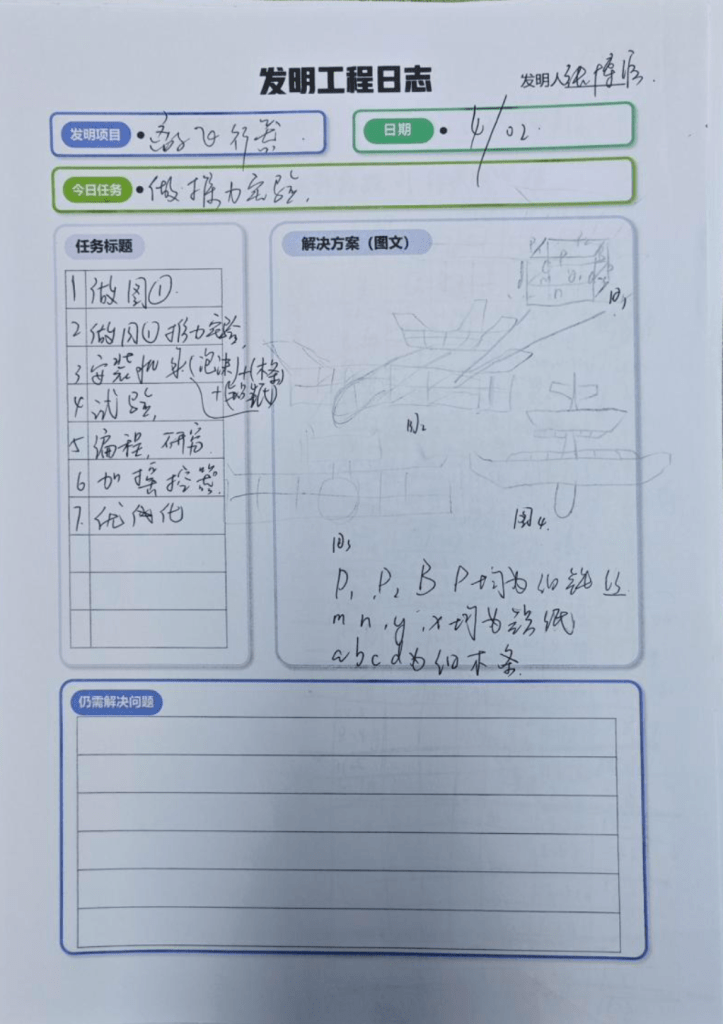 发明工程日志
发明人 张博
发明项目 离子飞行器
日期 4/02
今日任务 做推力实验
任务标题
1 做图①
2 做图①推力实验
3 安装机身(泡沫)+(木条)
+(铝纸)
4 试验
5 编程,研究
6 加摇控器
7 优化
解决方案(图文)
图1
图2
图3
图4
P₁ P₂ B P均为细铁丝
m n,y,x均为铝纸
a b c d为细木条
仍需解决问题